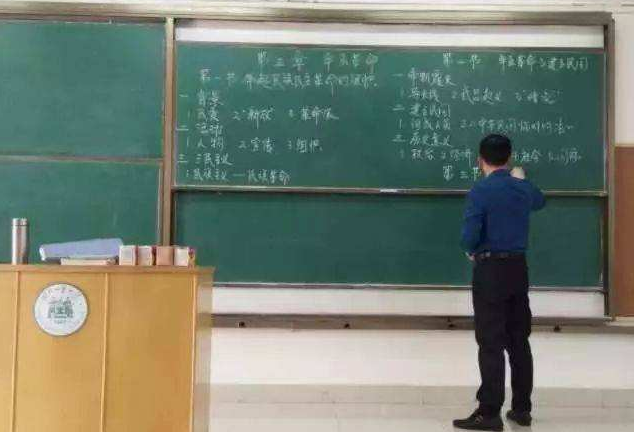 第三章 辛亥革命
第一节 举起民族民主革命的旗帜
一 背景
1.民众 2.“新政” 3.革命派
二 活动
1.人物 2.宣传 3.组织
三 三民主义
1.民族主义 — 民族革命
第二节 辛亥革命与建立民国
一 帝制覆灭
1.导火线 2.武昌起义
二 建立民国
1.组成人员 2.《中华民国临时约法》
三 历史意义
1.政治 2.经济
第三节